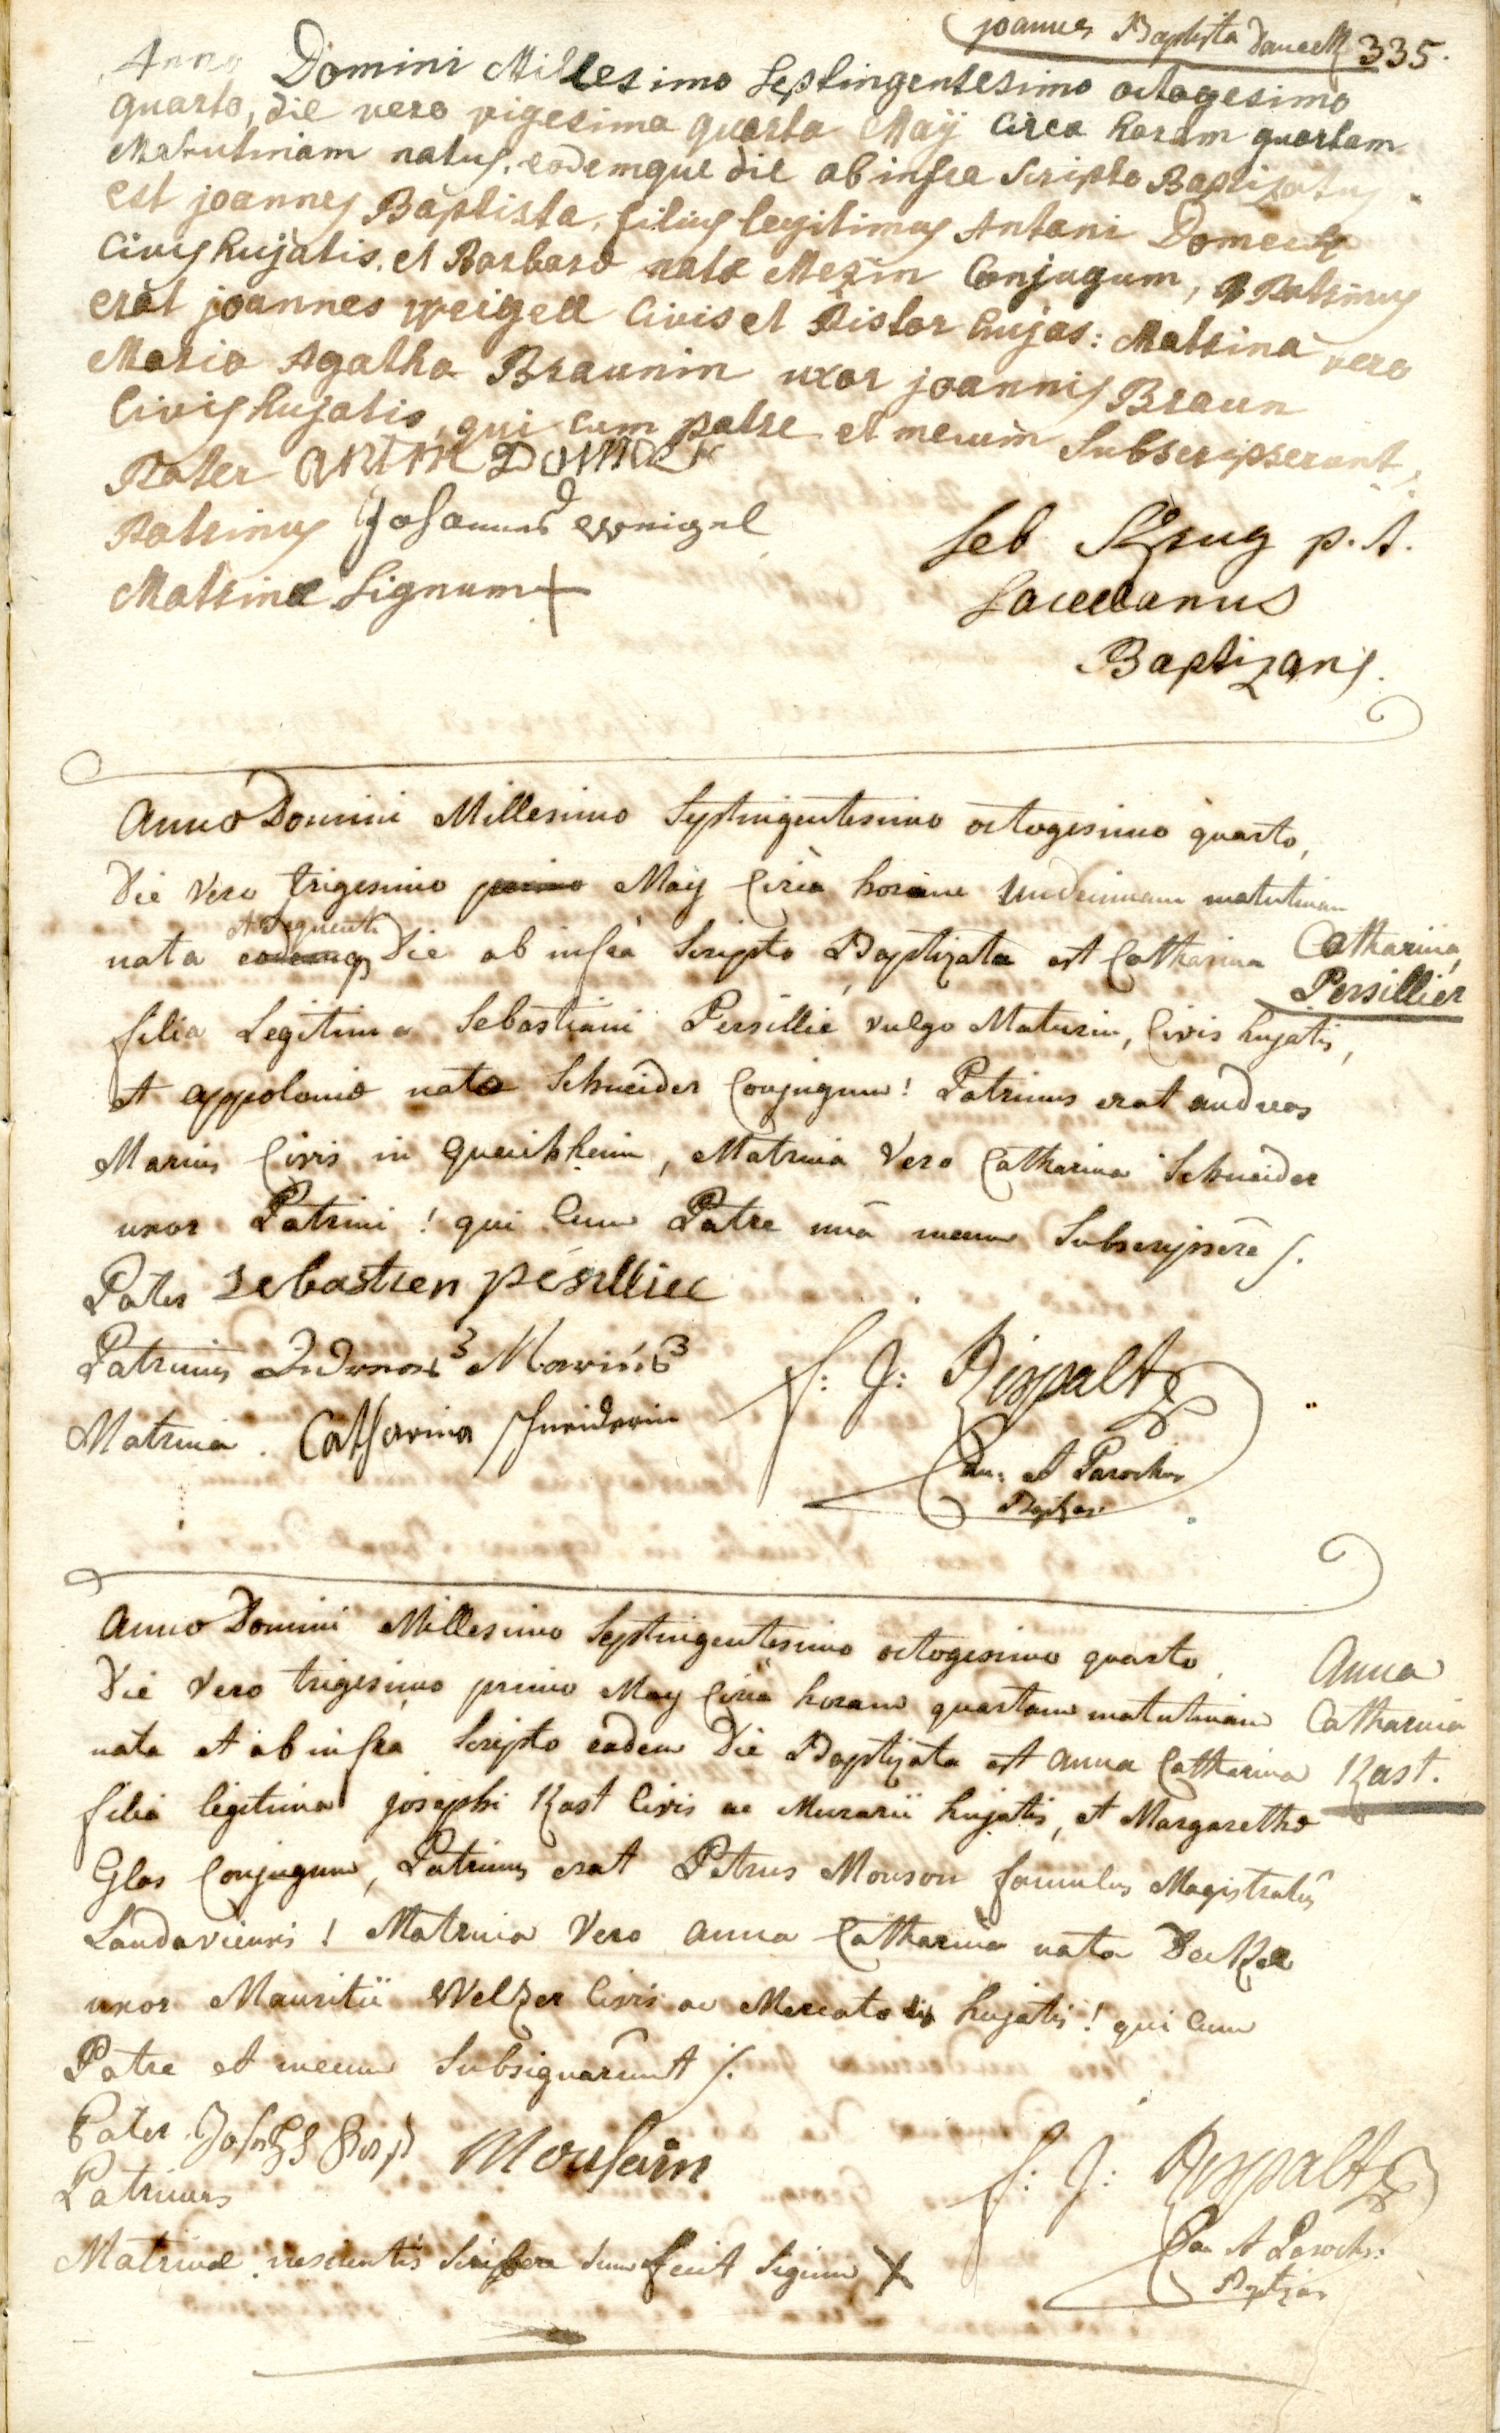 Joannes Baptista 335.
Anno Domini Millesimo Septingentesimo octogesimo
quarto, die vero vigesima quarta Maÿ circa horam quartam
Matutinam natus, eodemque die ab infra scripto Baptizatus
est joannes Baptista, filius legitimus Antoni
Civis hujatis, et Barbarae natae Mezin Conjugum, Patrinus
erat joannes Weigell Civis et Pistor hujas: Matrina vero
Maria Agatha Braunin uxor joannis Braun
Civis hujatis, qui cum patre et mecum Subscripserunt,
Pater
Patrinus Johannes Weigel
Matrinae Signum +
Seb Krug p. t.
Sacellanus
Baptizans.
Anno Domini Millesimo Septingentesimo octogesimo quarto,
Die Vero trigesimo primo Maÿ Circa horam undecimam matutinam
et sequenti
nata eademq Die ab infra Scripto Baptizata est Catharina
Catharina
Persillier
filia Legitima Sebastiani Persillié vulgo Maturin, Civis hujatis,
et appolonia nata Schneider Conjugum! Patrinus erat andreas
Marius Civis in Queichheim, Matrina Vero Catharina Schneider
uxor Patrini! qui Cum Patre unà mecum Subscripsere /.
Pater sebastien
Patrinus
Matrina. Catharina Schneiderin
f: J: Rispalt
Can: et Parochus
Baptzans
Anno Domini Millesimo Septingentesimo octogesimo quarto.
Die Vero trigesimo primo May Circa horam quartam matutinam
nata et ab infra Scripto eadem Die Baptizata est anna Catharina
Anna
Catharina
Kast.
filia legitima josephi Kast Civis ac Murarii hujatis, et Margaretha
Glas Conjugum, Patrinus erat Petrus Mouson famulus Magistratûs
Landaviensis! Matrina Vero anna Catharina nata Decker
uxor Mauritii Welzer Civis ac Mercatoris hujatis! qui Cum
Patre et mecum Subsignarunt /.
Pater
Patrinus
Matrinae nescientis Scribere Signum X
f: J: Rispalt
Can et Paroch:
Baptzans